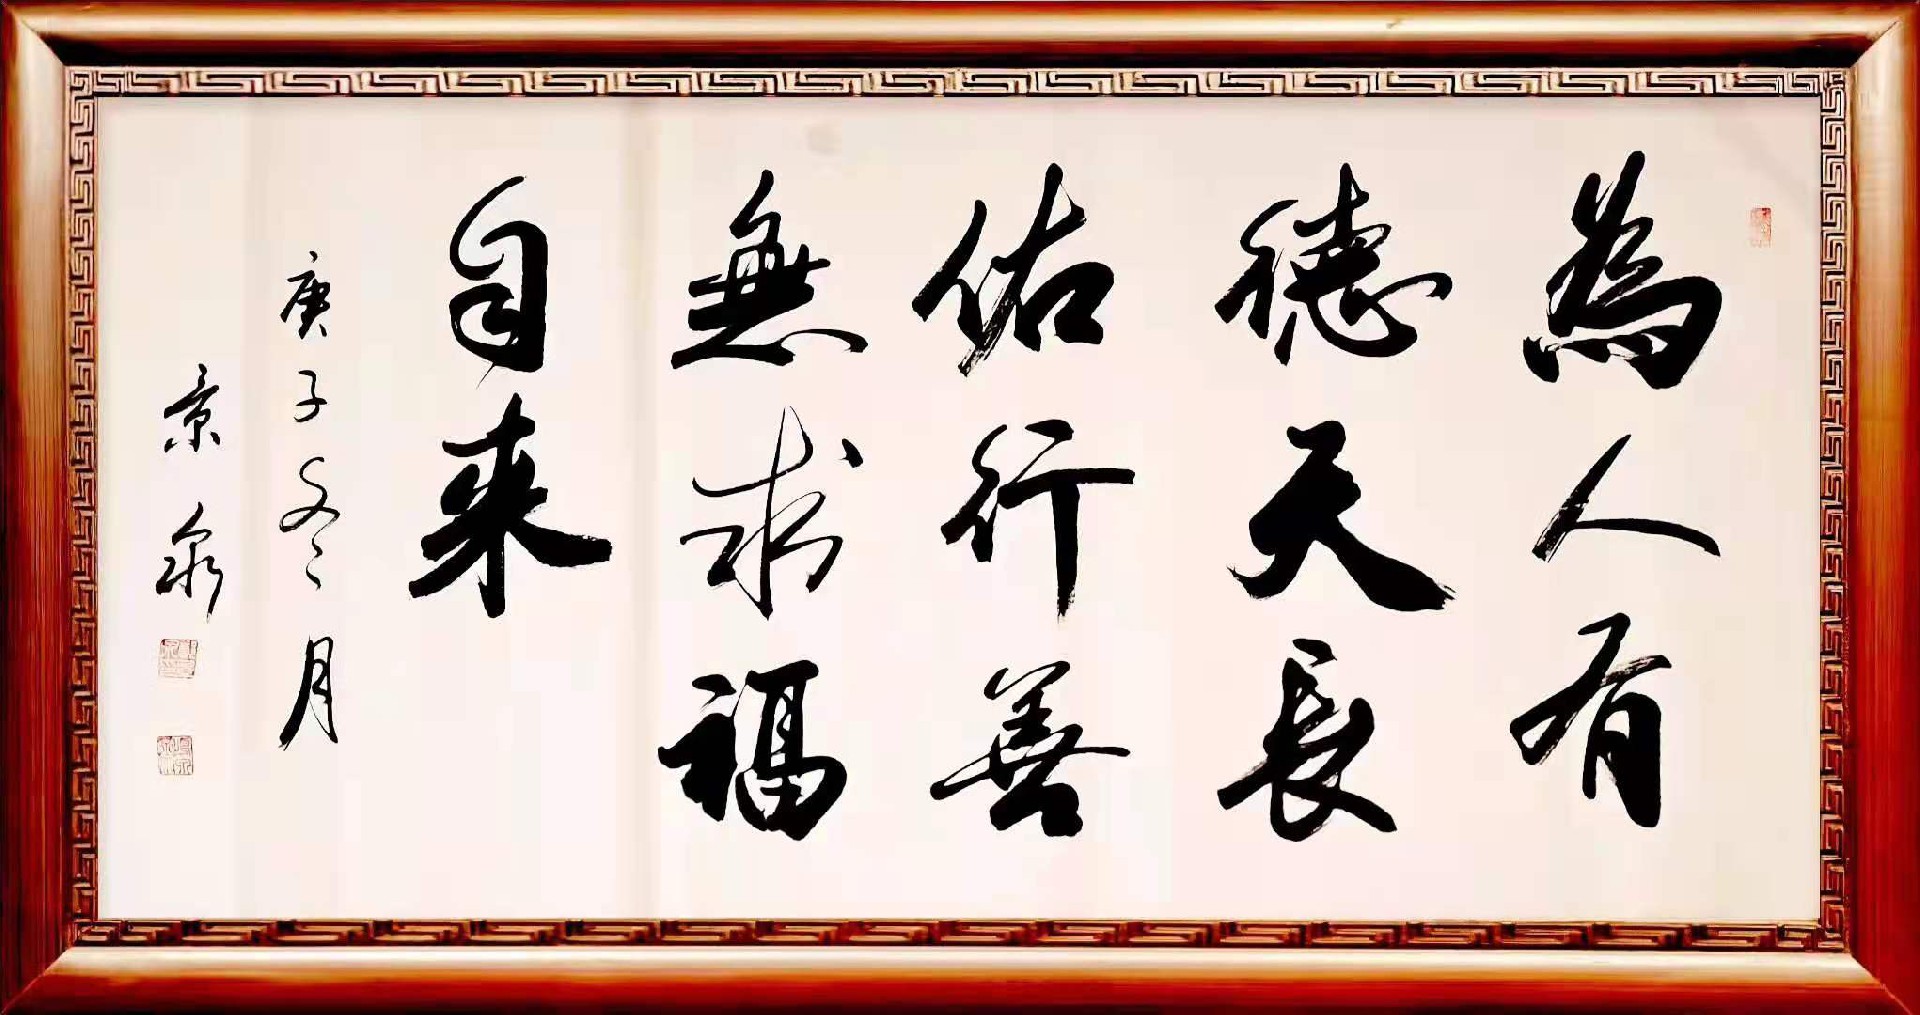 為人有
德天長
佑行善
無求福
自来
庚子冬月
景泉